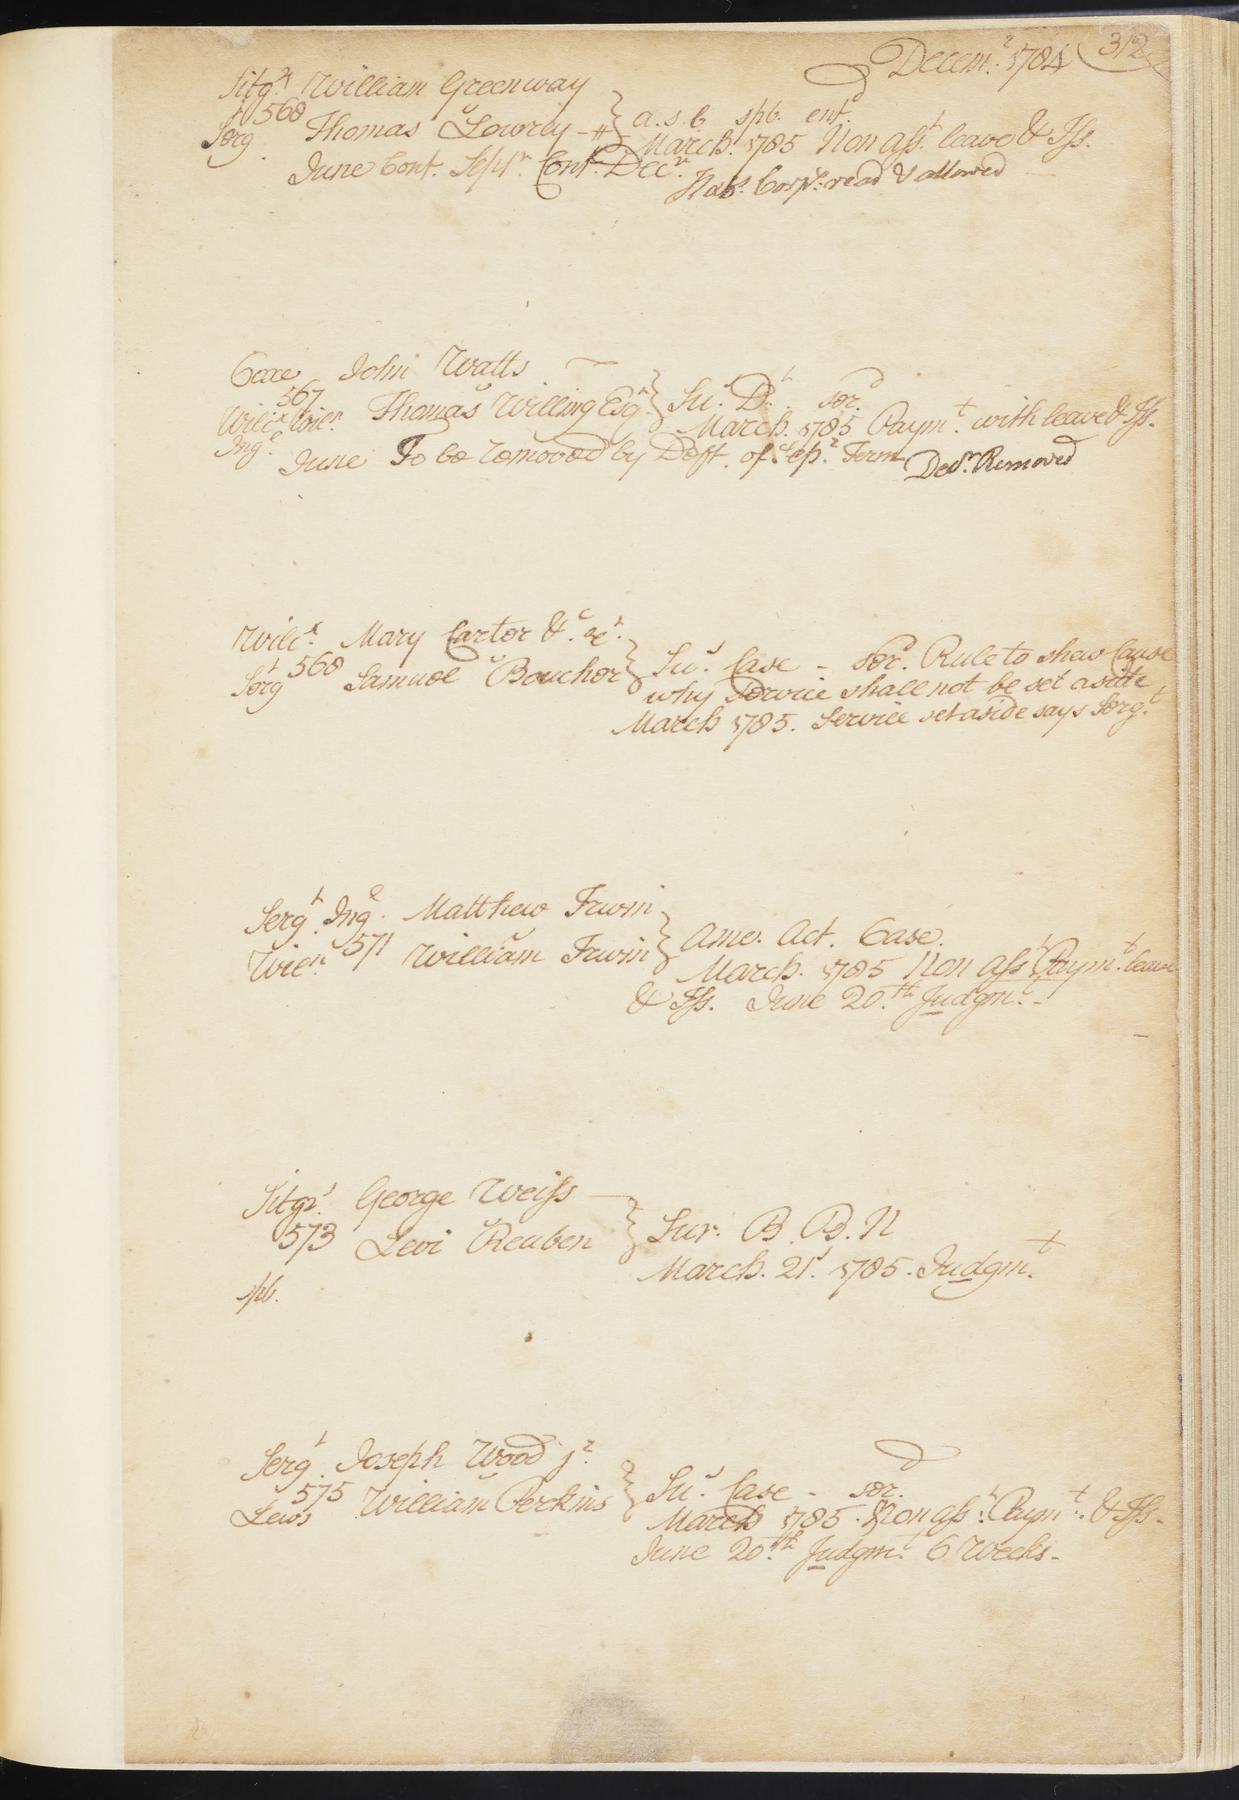 Decemr. 1784 312
Sitgrs William Greenway
568
Sergt Thomas Lowrey - # } a. s. b spb. entd
March. 1785 Non Asst. leave & Iss.
June Cont. Sepr. Cont. Decr.
Habs. Corps. read & allowed
Coxe John Watts
567
Wilcx Wien. Thomas Willing Esqr. } Su. Dt. serd.
Inge. March. 1785 Paymt. with leave & Iss.
June To be removed by Deft. of Sepr. Term Decr. Removed
Wilcx. Mary Carter &c. &c.
568
Sergt Samuel Boucher } Sus. Case - Serd. Rule to shew Cause
why Service shall not be set aside
March 1785. Service set aside says Sergt.
Sergt. Inge. Matthew Irwin
Wien. 571 William Irwin } Ame. Act. Case.
March. 1785 Non Asst. Paymt. leave
& Iss. June 20th. Judgmt. -
Sitgrs. George Weiss
573 Levi Reuben } Sur. B. B. N
March. 21s. 1785. Judgmt.
spb.
Sergt. Joseph Wood jr.
575 William Perkins } Sus. Case - serd.
Lewis March 1785. Non Asst. Paymt. & Iss -
June 20th. Judgmt. 6 Weeks -